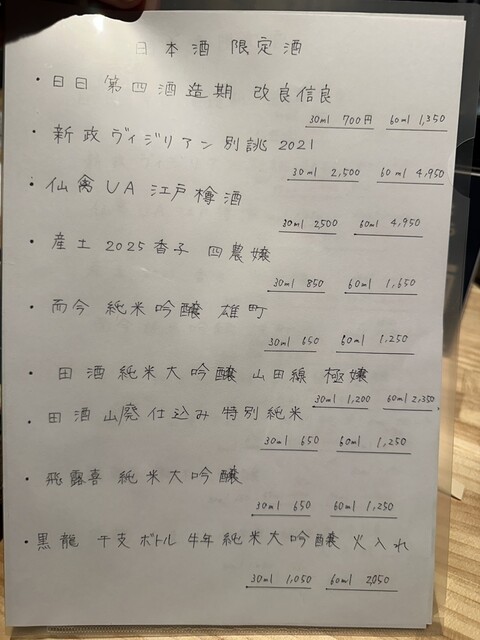 日本酒 限定酒
・日日 第四酒造期 改良信良
30ml 700円 60ml 1,350
・新政 ヴィジリアン 別誂 2021
30ml 2,500 60ml 4,950
・仙禽 UA 江戸樽酒
30ml 2500 60ml 4,950
・産土 2025 香子 四農嬢
30ml 850 60ml 1,650
・而今 純米吟醸 雄町
30ml 650 60ml 1,250
・田酒 純米大吟醸 山田線 極嬢
30ml 1,200 60ml 2,350
・田酒 山廃仕込み 特別純米
30ml 650 60ml 1,250
・飛露喜 純米大吟醸
30ml 650 60ml 1,250
・黒龍 干支ボトル 牛年 純米大吟醸 火入れ
30ml 1,050 60ml 2,050